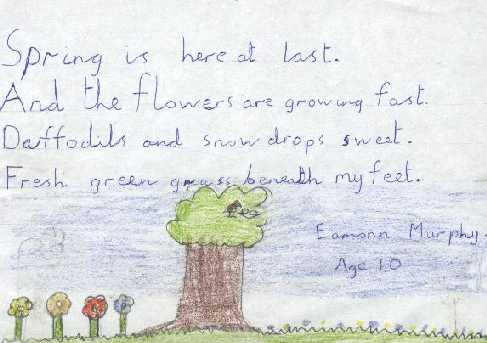 Spring is here at last.
And the flowers are growing fast.
Daffodils and snowdrops sweet.
Fresh green grass beneath my feet.
Eamonn Murphy.
Age 10